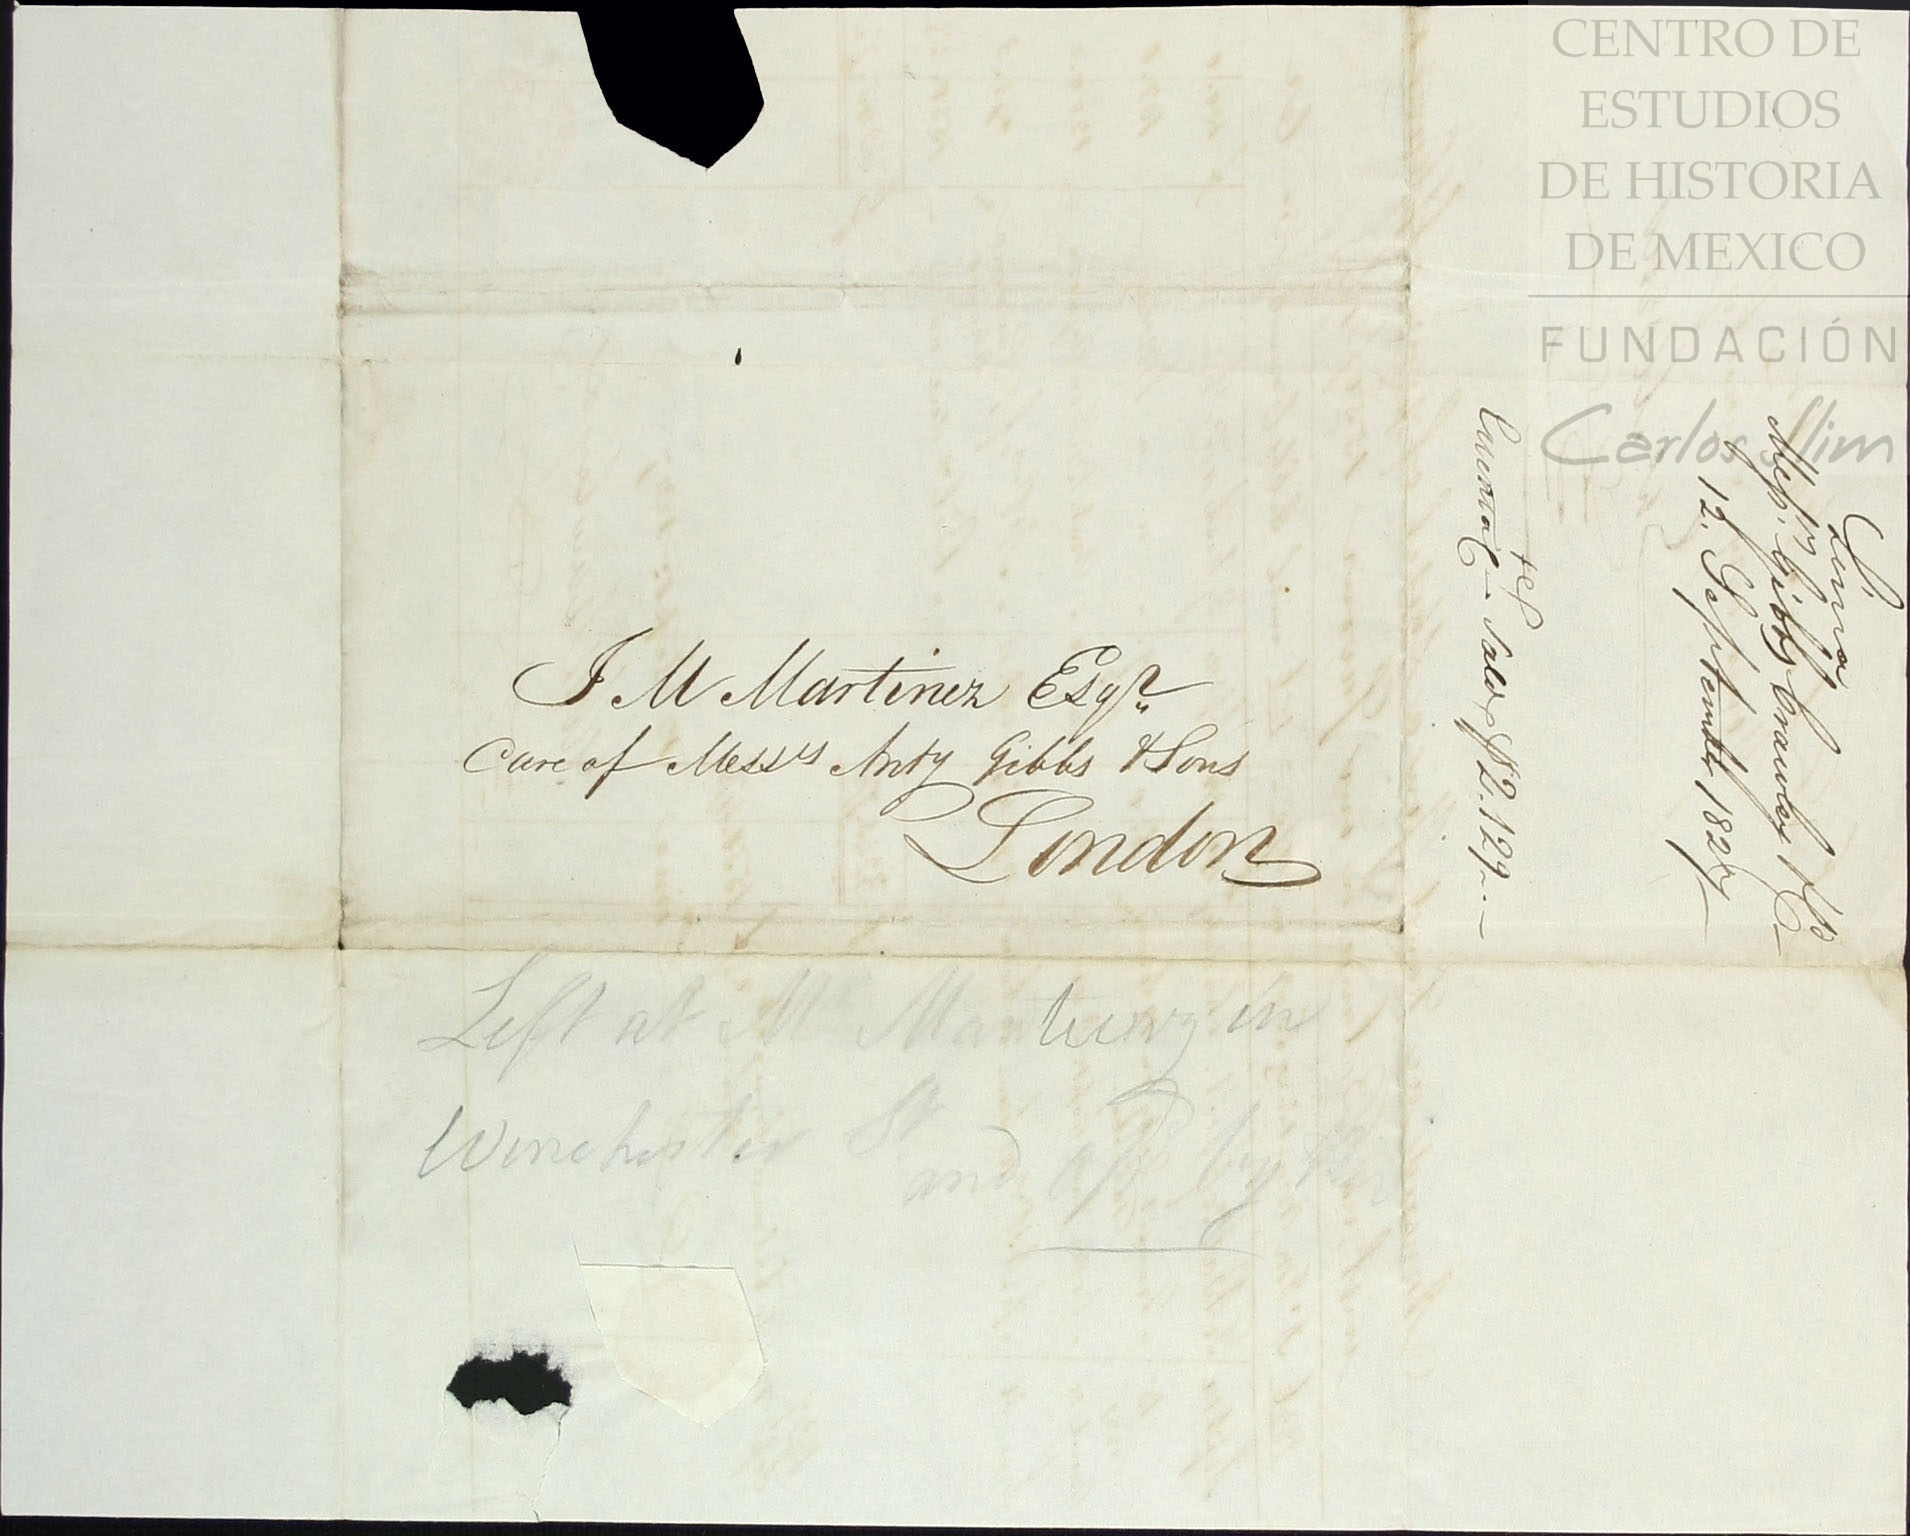 CENTRO DE
ESTUDIOS
DE HISTORIA
DE MEXICO
FUNDACIÓN
Carlos Slim
J M Martinez Esqr.
Care of Messrs Anty Gibbs & Sons
London
Left at Mr in
Winchester St
and by
Lima
Messrs. Gibbs Crawley & Co
12. September 1827
Cuenta Cte - Saldo $2.129..